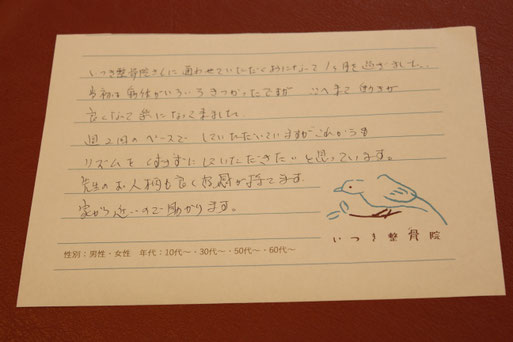 いつき整骨院さんに通わせていただくようになって1ヶ月を過ぎました。
当初は身体がいろいろきつかったですが ここまで 動きが
良くなって楽になって来ました。
週2回のペースで していただいていますがこれからも
リズムをくずさずにしていただきたいと思っています。
先生のお人柄も良く好感が持てます。
家から近いので助かります。
いつき整骨院
性別:男性・女性 年代:10代～・30代～・50代～・60代～